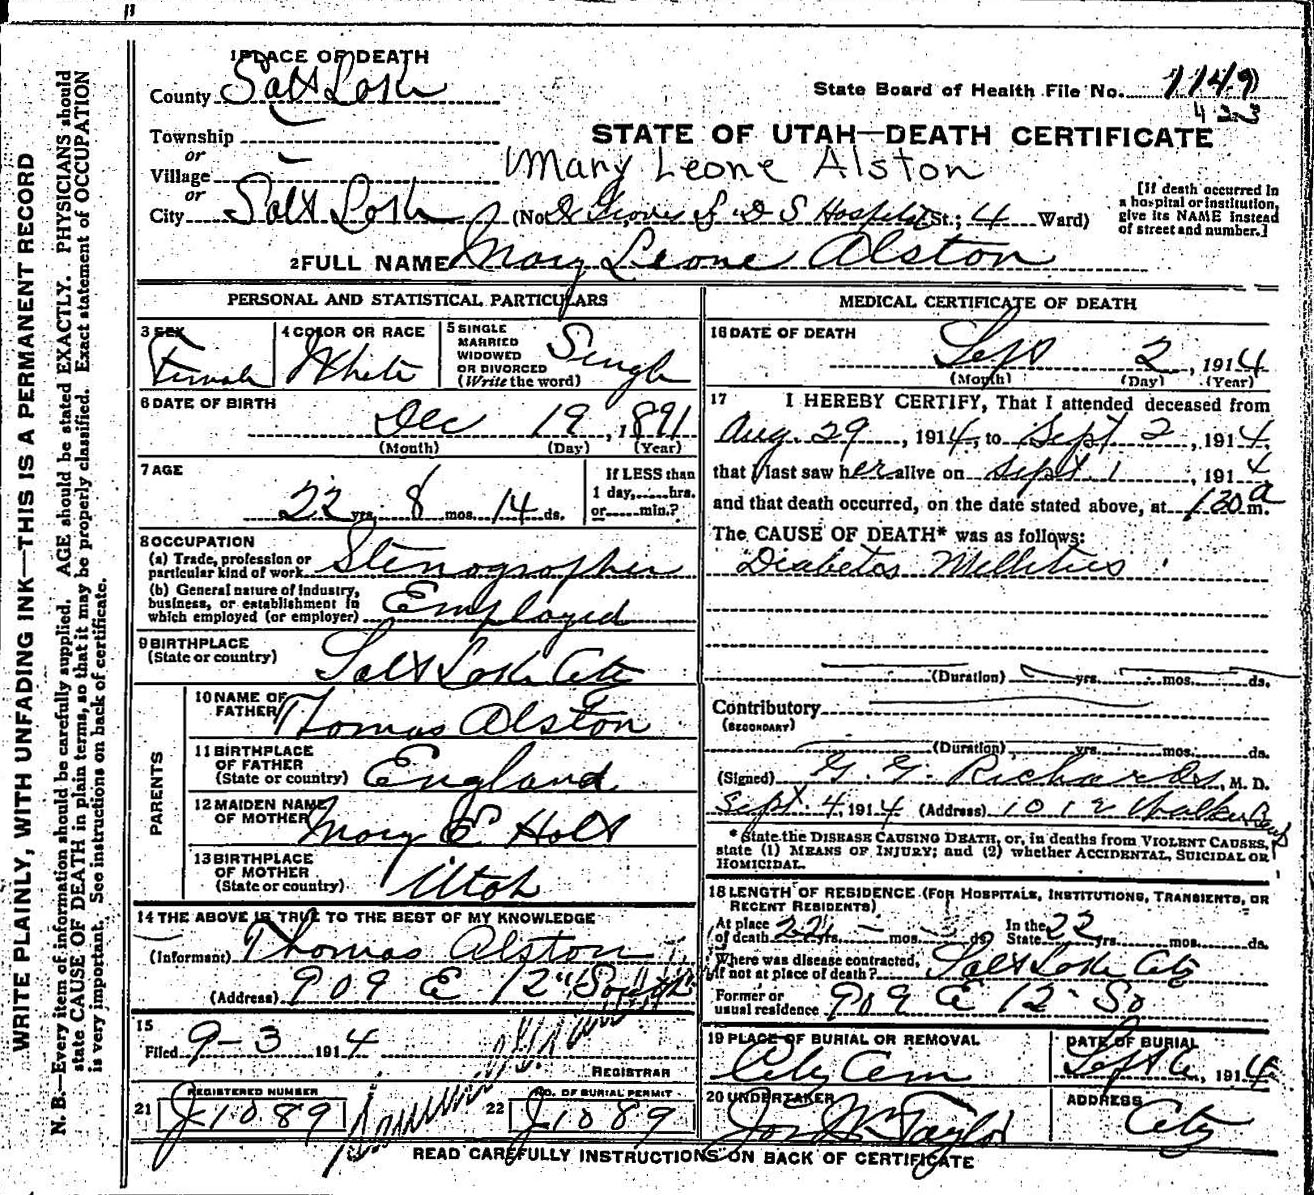 1 PLACE OF DEATH
County Salt Lake
State Board of Health File No. 1149
423
Township
or
Village
or
City Salt Lake
STATE OF UTAH—DEATH CERTIFICATE
Mary Leone Alston
(No. Groves L D S Hospital St.; 4 Ward)
[If death occurred in
a hospital or institution,
give its NAME instead
of street and number.]
2 FULL NAME Mary Leone Alston
PERSONAL AND STATISTICAL PARTICULARS
3 SEX Female
4 COLOR OR RACE White
5 SINGLE
MARRIED
WIDOWED
OR DIVORCED
(Write the word) Single
6 DATE OF BIRTH
Dec 19, 1891
(Month) (Day) (Year)
7 AGE
22 yrs. 8 mos. 14 ds.
If LESS than
1 day, hrs.
or min.?
8 OCCUPATION
(a) Trade, profession or
particular kind of work Stenographer
(b) General nature of industry,
business, or establishment in
which employed (or employer) Employed
9 BIRTHPLACE
(State or country) Salt Lake City
PARENTS
10 NAME OF
FATHER Thomas Alston
11 BIRTHPLACE
OF FATHER
(State or country) England
12 MAIDEN NAME
OF MOTHER Mary E Holt
13 BIRTHPLACE
OF MOTHER
(State or country) Utah
14 THE ABOVE IS TRUE TO THE BEST OF MY KNOWLEDGE
(Informant) Thomas Alston
(Address) 909 E 12" South
15
Filed 9-3 1914
REGISTRAR
21 REGISTERED NUMBER
J1089
22 NO. OF BURIAL PERMIT
J1089
MEDICAL CERTIFICATE OF DEATH
16 DATE OF DEATH
Sept 2, 1914
(Month) (Day) (Year)
17 I HEREBY CERTIFY, That I attended deceased from
Aug. 29, 1914, to Sept 2, 1914,
that I last saw her alive on Sept. 1, 1914
and that death occurred, on the date stated above, at 1:20 a m.
The CAUSE OF DEATH* was as follows:
Diabetes Mellitus
(Duration) yrs. mos. ds.
Contributory
(SECONDARY)
(Duration) yrs. mos. ds.
(Signed) G. G. Richards, M. D.
Sept. 4, 1914 (Address) 1012 Walker Bank
* State the DISEASE CAUSING DEATH, or, in deaths from VIOLENT CAUSES,
state (1) MEANS OF INJURY; and (2) whether ACCIDENTAL, SUICIDAL OR
HOMICIDAL.
18 LENGTH OF RESIDENCE (FOR HOSPITALS, INSTITUTIONS, TRANSIENTS, OR
RECENT RESIDENTS)
At place
of death yrs. mos. ds. In the
State 22 yrs. mos. ds.
Where was disease contracted,
if not at place of death? Salt Lake City
Former or
usual residence 909 E 12" So
19 PLACE OF BURIAL OR REMOVAL
City Cem
DATE OF BURIAL
Sept 6, 1914
20 UNDERTAKER
Jos Wm Taylor
ADDRESS
City
READ CAREFULLY INSTRUCTIONS ON BACK OF CERTIFICATE
WRITE PLAINLY, WITH UNFADING INK—THIS IS A PERMANENT RECORD
N. B.—Every item of information should be carefully supplied. AGE should be stated EXACTLY. PHYSICIANS should
state CAUSE OF DEATH in plain terms, so that it may be properly classified. Exact statement of OCCUPATION
is very important. See instructions on back of certificate.